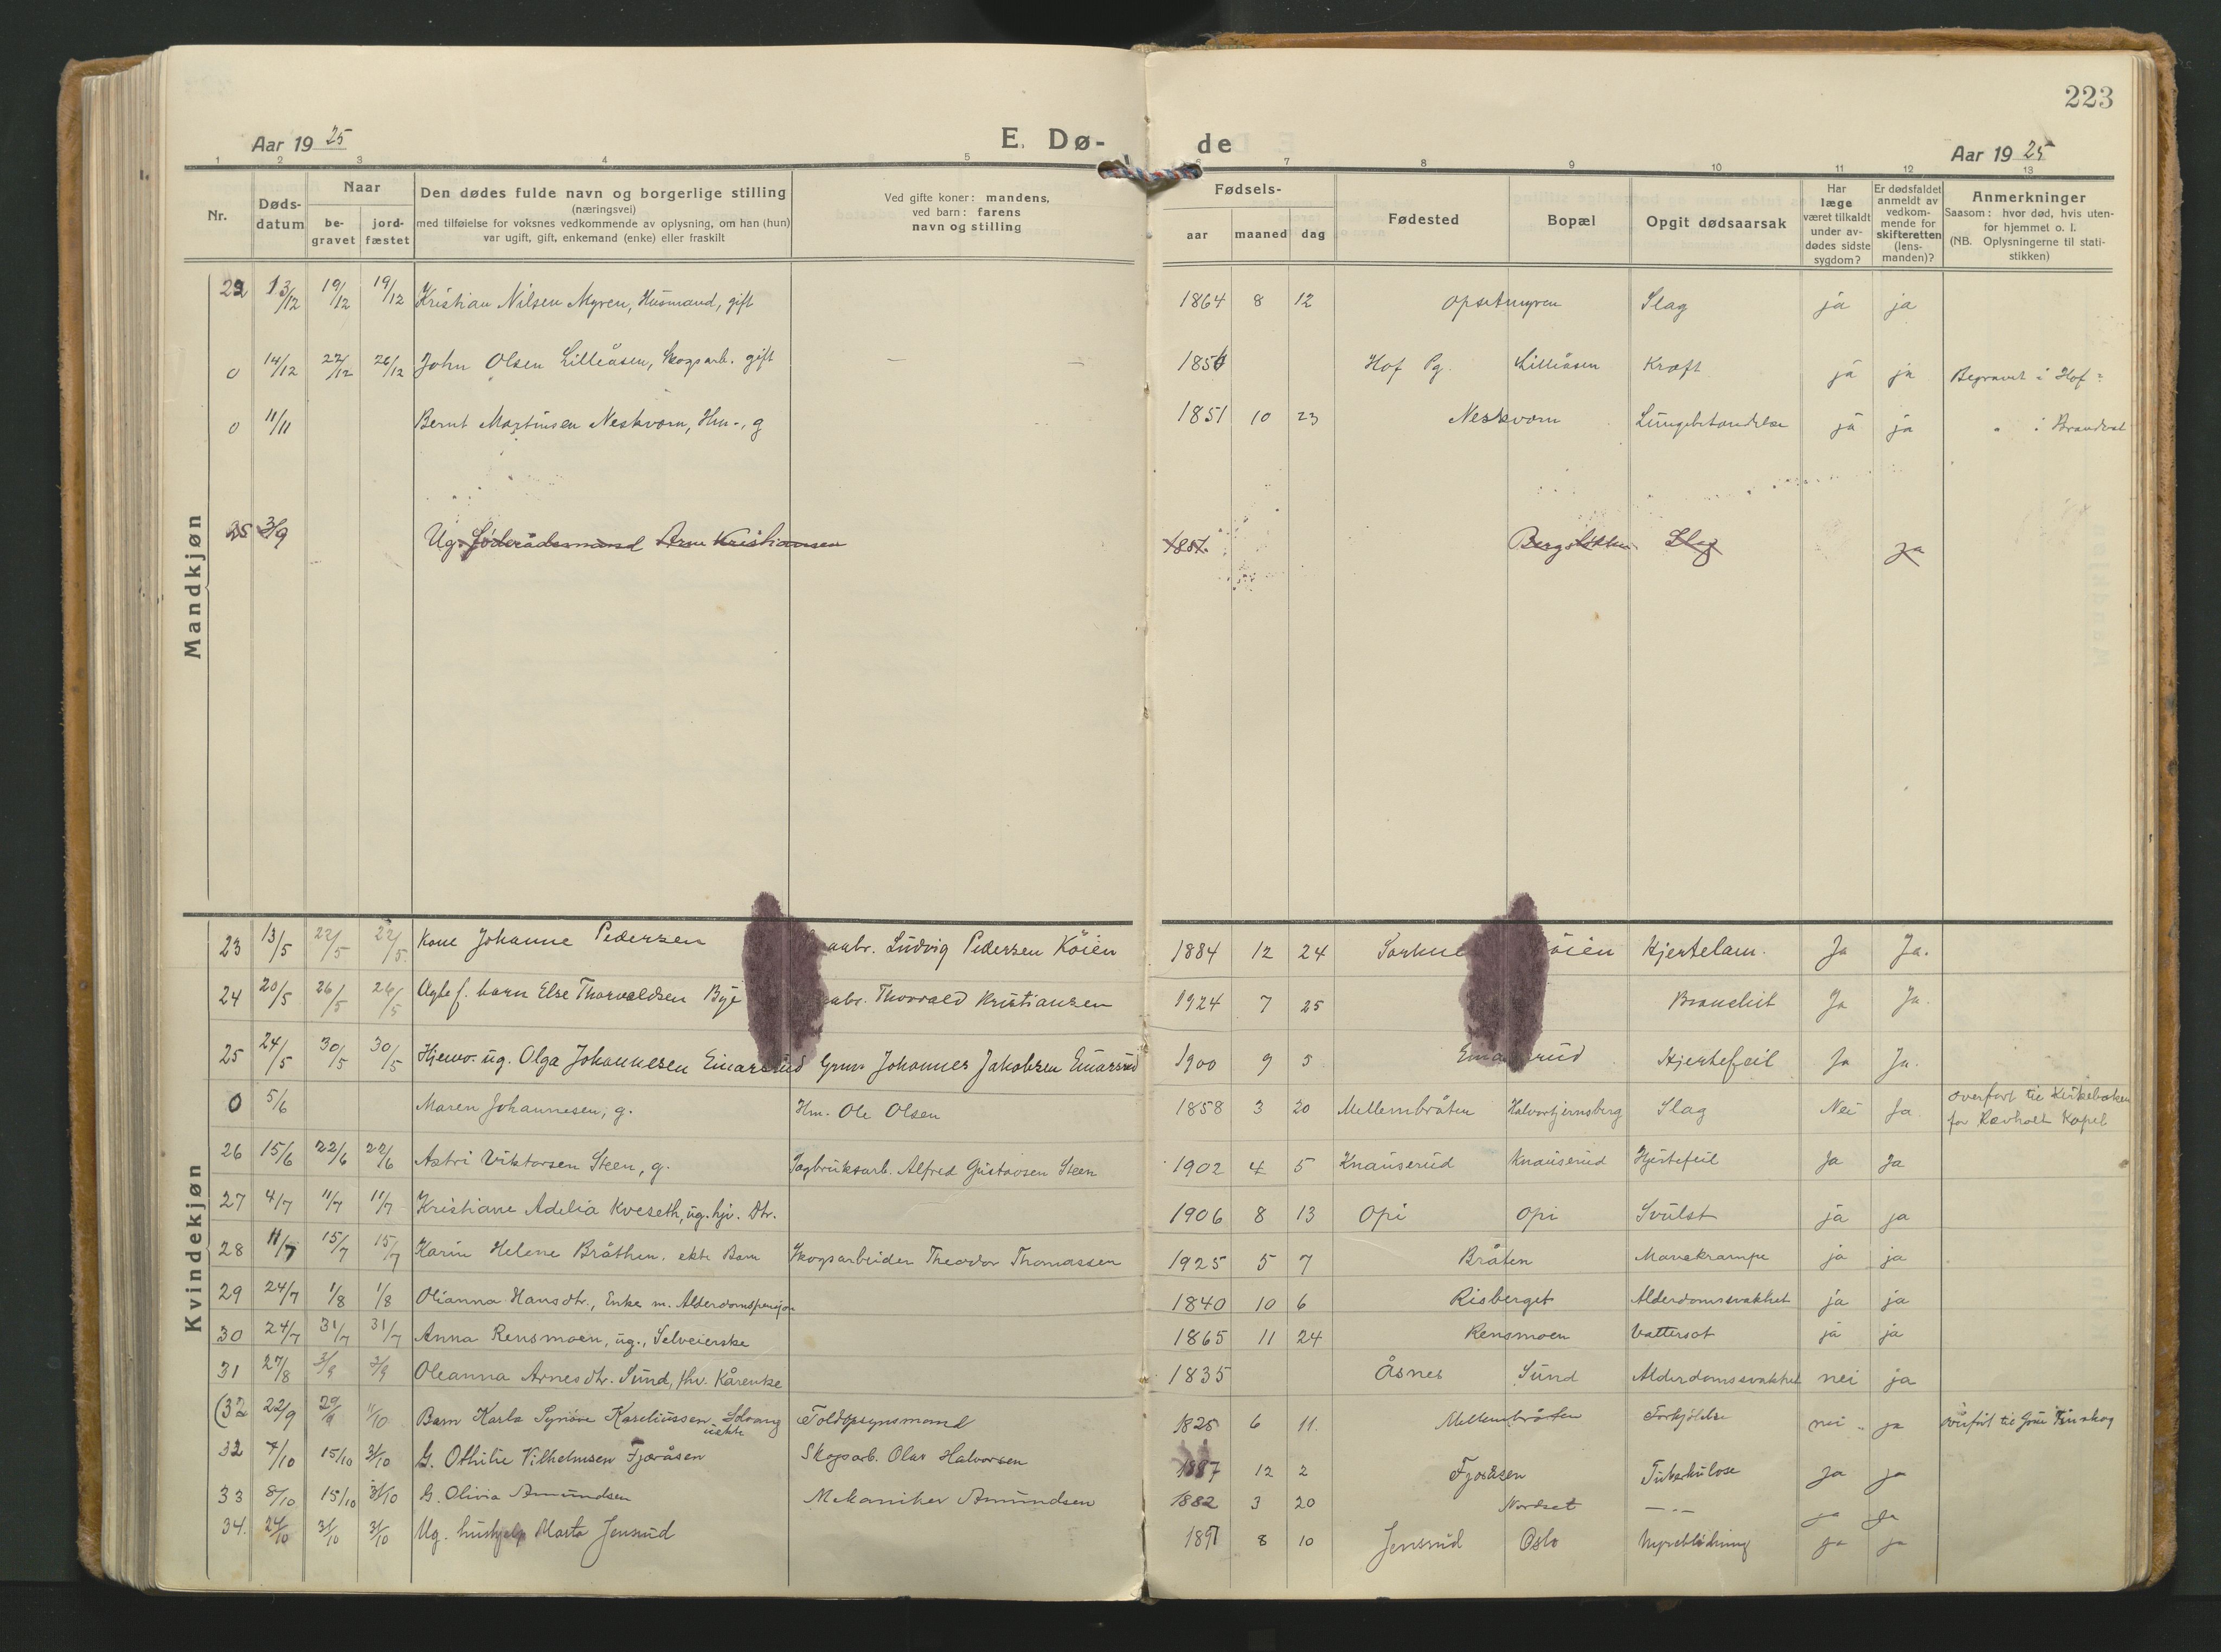 223
Aar 1925 E. Dø- de Aar 1925
1 2 3 4 5 6 7 8 9 10 11 12 13
Nr.
Døds-
datum
Naar
be-
gravet
jord-
fæstet
Den dødes fulde navn og borgerlige stilling
(næringsvei)
med tilføielse for voksnes vedkommende av oplysning, om han (hun)
var ugift, gift, enkemand (enke) eller fraskilt
Ved gifte koner: mandens,
ved barn: farens
navn og stilling
Fødsels-
aar maaned dag
Fødested
Bopæl
Opgit dødsaarsak
Har
læge
været tilkaldt
under av-
dødes sidste
sygdom?
Er dødsfaldet
anmeldt av
vedkom-
mende for
skifteretten
(lens-
manden)?
Anmerkninger
Saasom: hvor død, hvis uten-
for hjemmet o. l.
(NB. Oplysningerne til stati-
stikken)
Mandkjøn
22 13/12 19/12 19/12 Kristian Nilsen Myren, Husmand, gift 1864 8 12 Opsetmyren Slag ja ja
0 14/12 22/12 26/12 John Olsen Lilleåsen, Skogsarb. gift — — 1854 Hof Pg. Lilleåsen Kræft ja ja Begravet i Hof
0 11/11 Bernt Martinsen Neskvern, Hm., g 1851 10 23 Neskvern Lungebetændelse ja ja " i Brandval
25 3/9 Ug. Føderådsmand Arne Kristiansen Slag ja
Kvindekjøn
23 13/5 22/5 22/5 Kone Johanne Pedersen arbr. Ludvig Pedersen Köien 1884 12 24 öien Hjertelam. Ja Ja.
24 20/5 26/5 26/5 Ægtef. barn Else Thorvaldsen Bye arbr. Thorvald Kristiansen 1924 7 25 Bronchit Ja Ja.
25 24/5 30/5 30/5 Hjemv. ug. Olga Johannesen Einarsrud Grur Johannes Jakobsen Einarsrud 1900 9 5 Einarsrud Hjertefeil Ja Ja.
0 5/6 Maren Johannesen, g. Hm. Ole Olsen 1858 3 20 Mellembråten Halvortjernsberg Slag Nei Ja. overført til Kirkeboken
for Rævholt Kapel
26 15/6 22/6 22/6 Astri Viktorsen Steen, g. Sagbruksarb. Alfred Gustavsen Steen 1902 4 5 Knauserud Knauserud Hjertefeil Ja Ja
27 4/7 11/7 11/7 Kristiane Adelia Kveseth, ug. hjv. Dtr. 1906 8 13 Opi Opi Svulst ja ja
28 11/7 15/7 15/7 Karin Helene Bråthen. ekte Barn Skogsarbeider Theodor Thomassen 1925 5 7 Bråten Mavekrampe ja ja
29 24/7 1/8 1/8 Olianna Hansdtr., Enke m. Alderdomspensjon 1840 10 6 Risberget Alderdomssvakhet ja ja
30 24/7 31/7 31/7 Anna Rensmoen, ug., Selveierske 1865 11 24 Rensmoen Vattersot ja ja
31 27/8 3/9 3/9 Oleanna Arnesdtr. Sund, fhv. Kårenke 1835 Åsnes Sund Alderdomssvakhet nei ja
(32 22/9 29/9 11/10 Barn Karla Synöve Kaseliussen Solvang
uekte Toldopsynsmand 1825 6 11. Mellembråten Forkjölelse nei ja overført til Grue Finskog
32 7/10 15/10 31/10 G. Othilie Vilhelmsen Fjøråsen Skogsarb. Olav Halvorsen 1887 12 2 Fjøråsen Tuberkulose Ja ja
33 8/10 15/10 31/10 G. Olivia Amundsen Mekaniker Amundsen 1882 3 20 Nordset —"— ja ja
34. 24/10 31/10 31/10 Ug. hushjelp Marta Jensrud 1897 8 10 Jensrud Oslo Nyreblödning ja ja